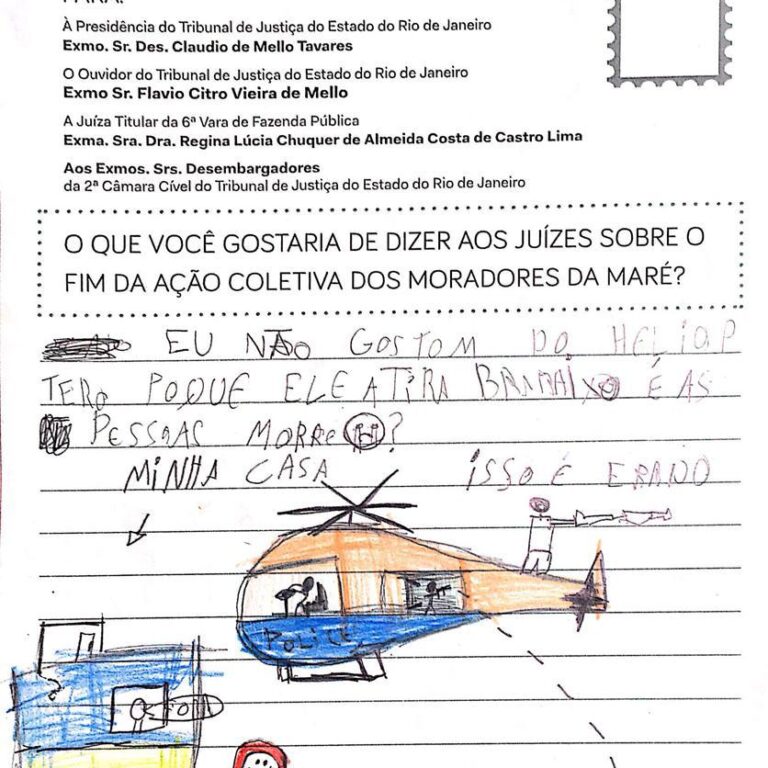 À Presidência do Tribunal de Justiça do Estado do Rio de Janeiro
Exmo. Sr. Des. Claudio de Mello Tavares
O Ouvidor do Tribunal de Justiça do Estado do Rio de Janeiro
Exmo Sr. Flavio Citro Vieira de Mello
A Juíza Titular da 6ª Vara de Fazenda Pública
Exma. Sra. Dra. Regina Lúcia Chuquer de Almeida Costa de Castro Lima
Aos Exmos. Srs. Desembargadores
da 2ª Câmara Cível do Tribunal de Justiça do Estado do Rio de Janeiro
O QUE VOCÊ GOSTARIA DE DIZER AOS JUÍZES SOBRE O
FIM DA AÇÃO COLETIVA DOS MORADORES DA MARÉ?
EU NÃO GOSTOM DO HELIOP
TERO POQUE ELE ATIRA É AS
PESSOAS MORRE ?
MINHA CASA ISSO É ERADO
POLICE